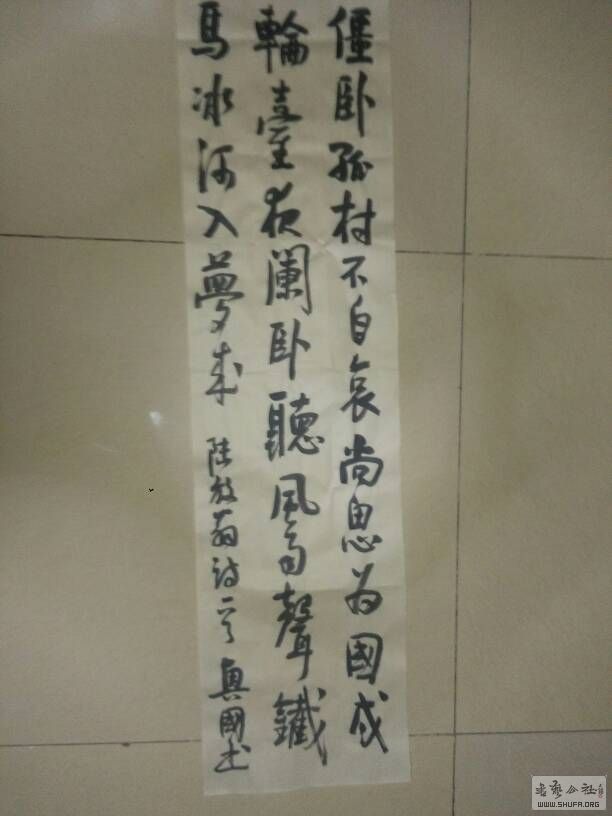 僵卧孤村不自哀尚思為國戍
輪臺夜闌卧聽風雨聲鐵
馬冰河入夢来 陸放翁詩一首 國書
書藝公社
WWW.SHUFA.ORG